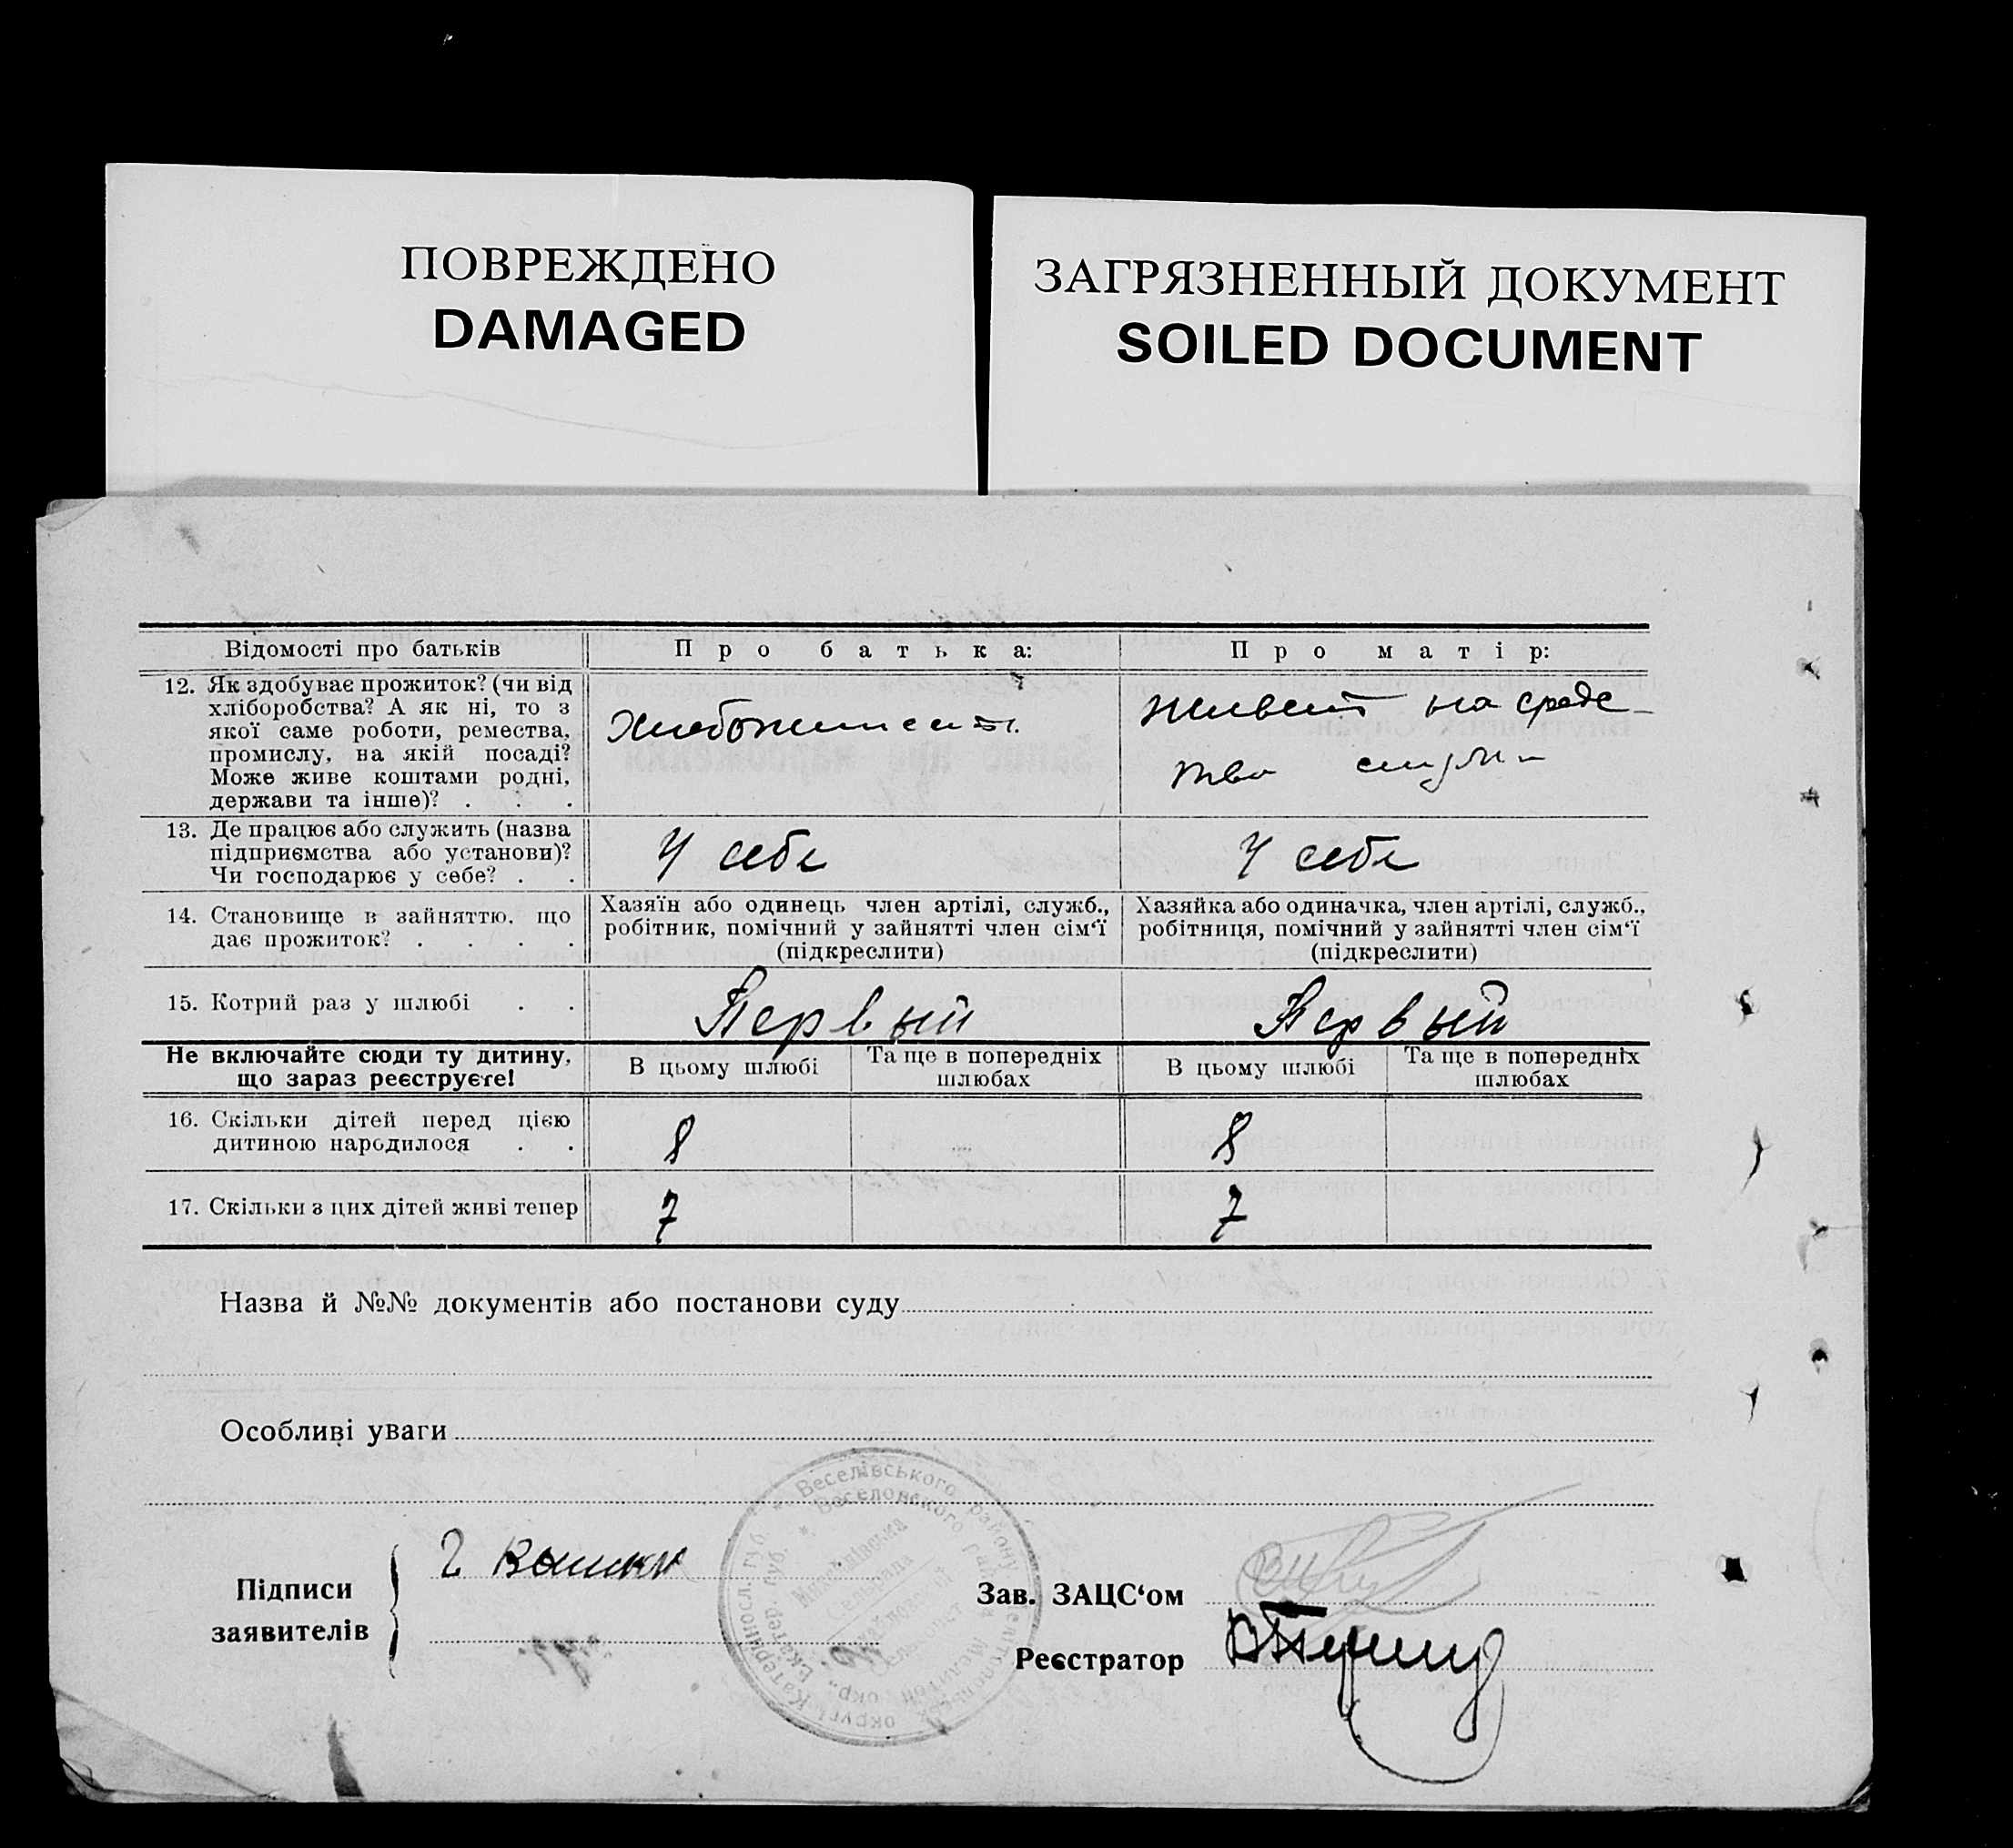 ПОВРЕЖДЕНО
DAMAGED
ЗАГРЯЗНЕННЫЙ ДОКУМЕНТ
SOILED DOCUMENT
Відомості про батьків
Про батька:
Про матір:
12. Як здобуває прожиток? (чи від
хліборобства? А як ні, то з
якої саме роботи, ремества,
промислу, на якій посаді?
Може живе коштами родні,
держави та інше)? . . .
живет на средс-
тва
13. Де працює або служить (назва
підприємства або установи)?
Чи господарює у себе? . .
У себе
У себе
14. Становище в зайняттю, що
дає прожиток? . . . .
Хазяїн або одинець член артілі, служб.,
робітник, помічний у зайнятті член сім‘ї
(підкреслити)
Хазяйка або одиначка, член артілі, служб.,
робітниця, помічний у зайнятті член сім‘ї
(підкреслити)
15. Котрий раз у шлюбі . .
Первый
Первый
Не включайте сюди ту дитину,
що зараз реєструєте!
В цьому шлюбі
Та ще в попередніх
шлюбах
В цьому шлюбі
Та ще в попередніх
шлюбах
16. Скільки дітей перед цією
дитиною народилося . .
8
8
17. Скільки з цих дітей живі тепер
7
7
Назва й №№ документів або постанови суду
Особливі уваги
Підписи
заявителів
Зав. ЗАЦС‘ом
Реєстратор
Веселівського району
Веселовского
Катериносл. губ.
Екатер. губ.